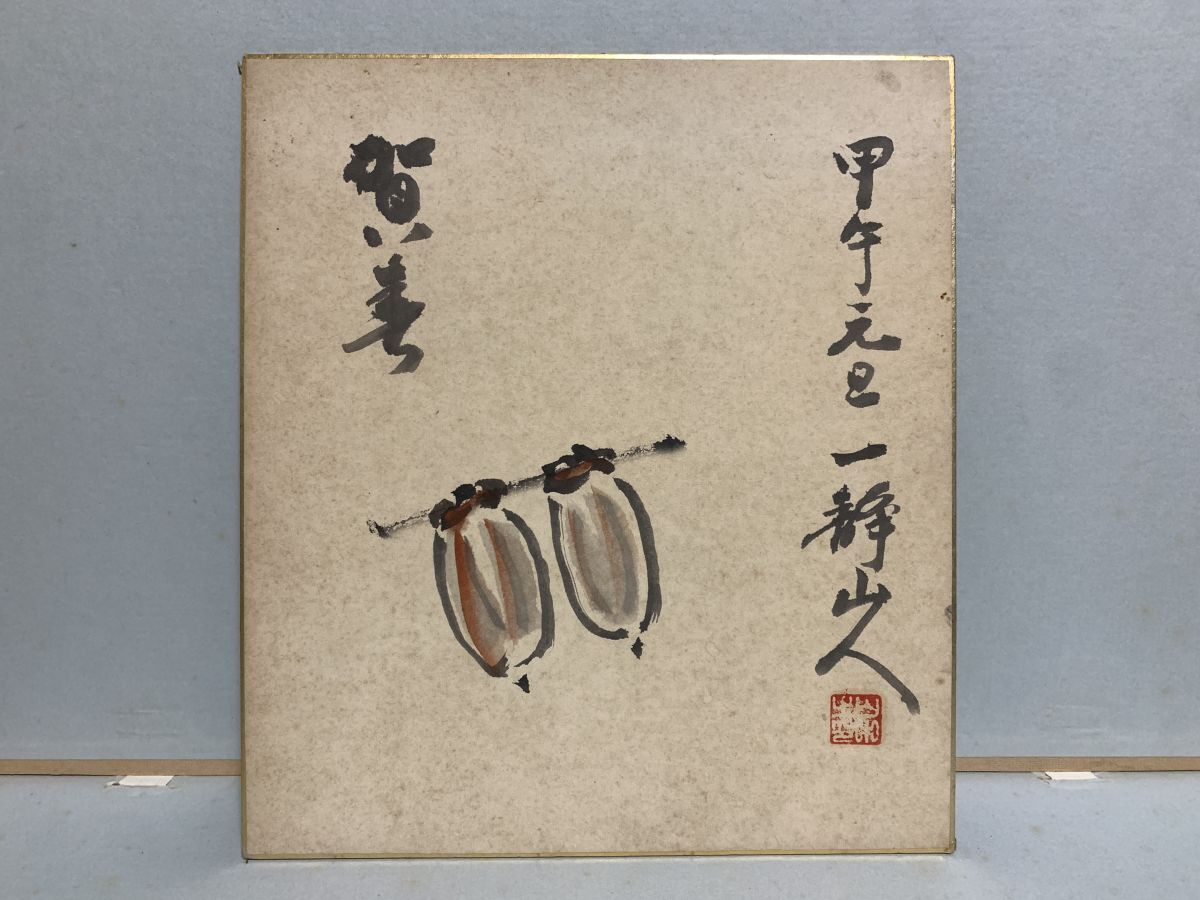 甲午元旦 一静山人
賀春